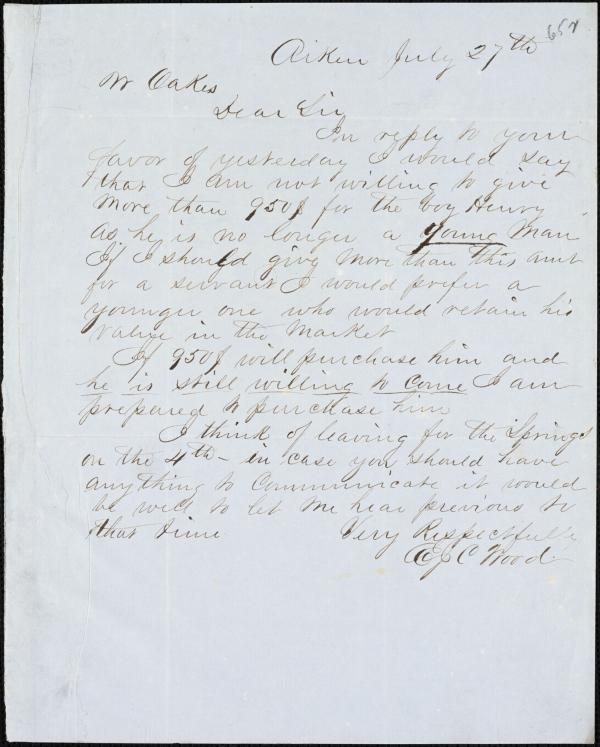 657
Aiken July 27th
Mr Oakes
Dear Sir
In reply to your
favor of yesterday I would say
that I am not willing to give
more than 950$ for the boy Henry
as he is no longer a young man
If I should give more than this amt
for a servant I would prefer a
younger one who would retain his
value in the market
If 950$ will purchase him and
he is still willing to come I am
prepared to purchase him
I think of leaving for the Springs
on the 4th - in case you should have
anything to communicate it would
be well to let me hear previous to
that time Very Respectfully
C Wood